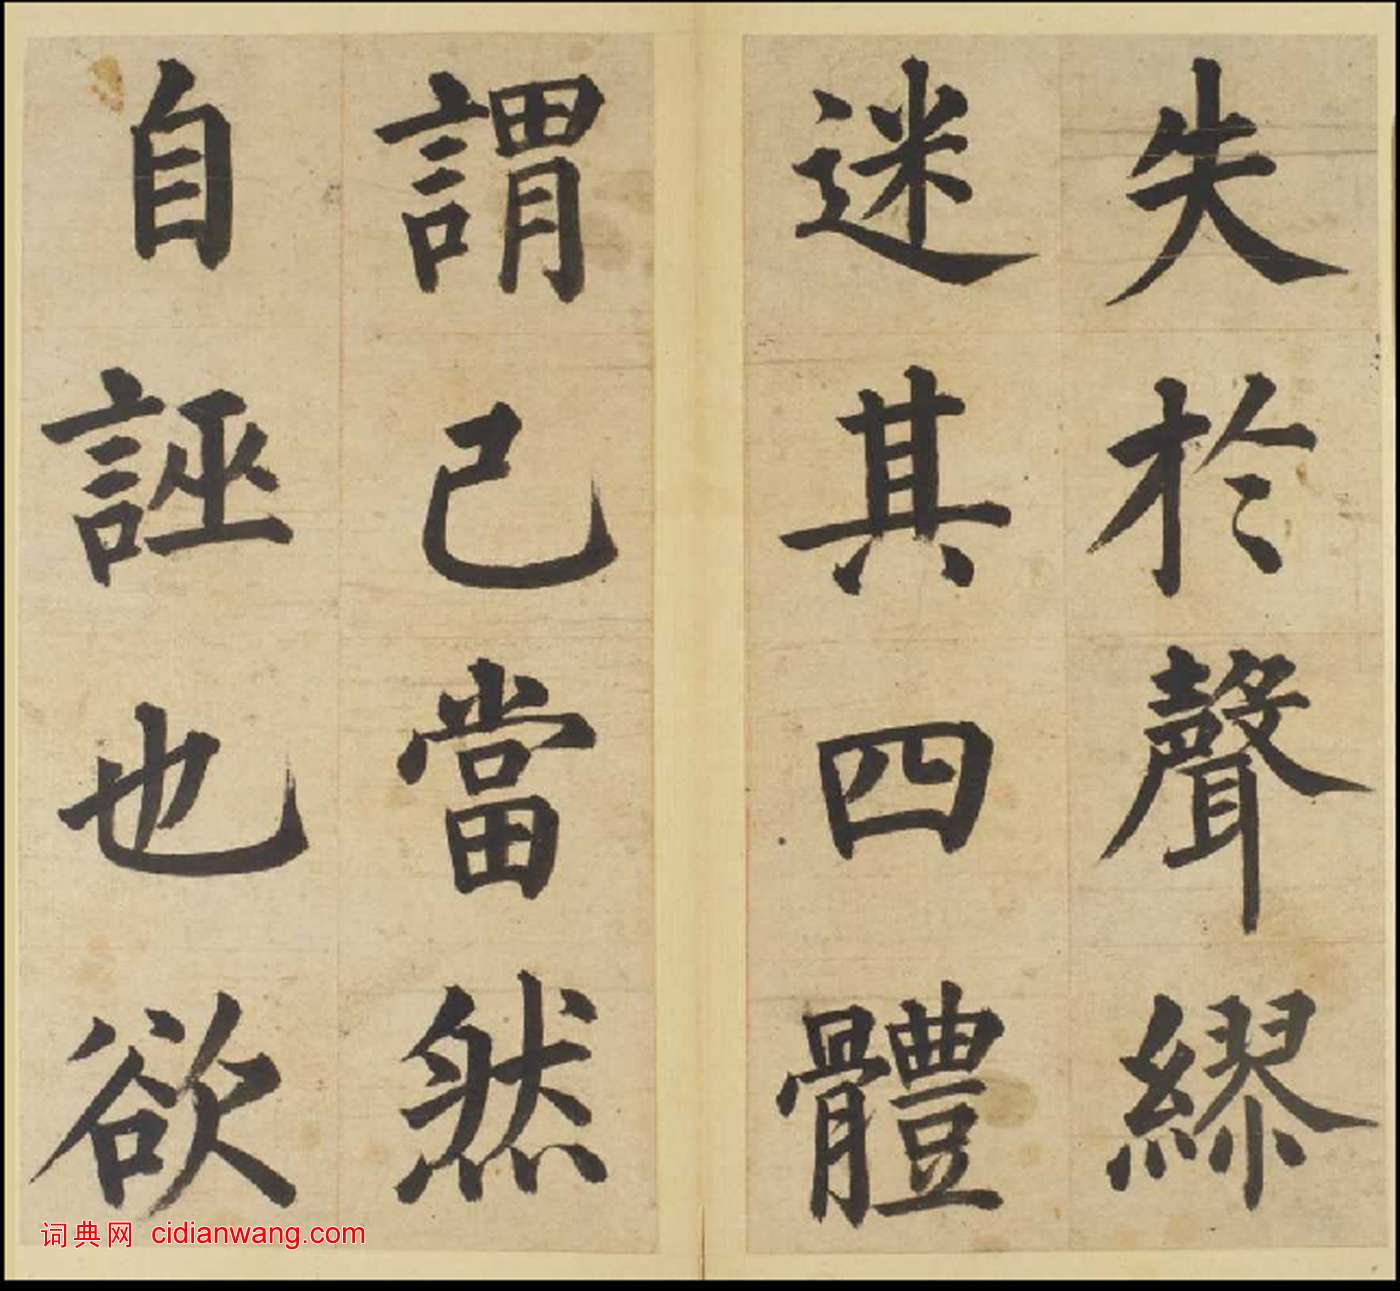 失於聲繆
迷其四體
謂己當然
自誣也欲
词典网 cidianwang.com